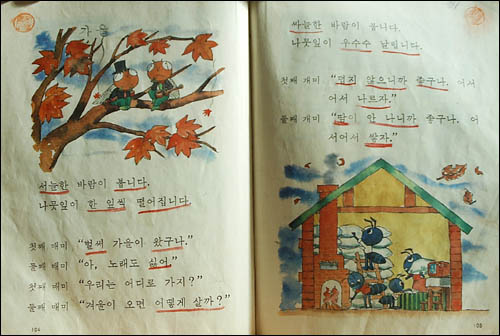 가을
서늘한 바람이 붑니다.
나뭇잎이 한 잎씩 떨어집니다.
첫째 매미 "벌써 가을이 왔구나."
둘째 매미 "아, 노래도 싫어."
첫째 매미 "우리는 어디로 가지?"
둘째 매미 "겨울이 오면 어떻게 살까?"
104
싸늘한 바람이 붑니다.
나뭇잎이 우수수 날립니다.
첫째 개미 "덥지 않으니까 좋구나. 어서
어서 나르자."
둘째 개미 "땀이 안 나니까 좋구나. 어
서어서 쌓자."
105